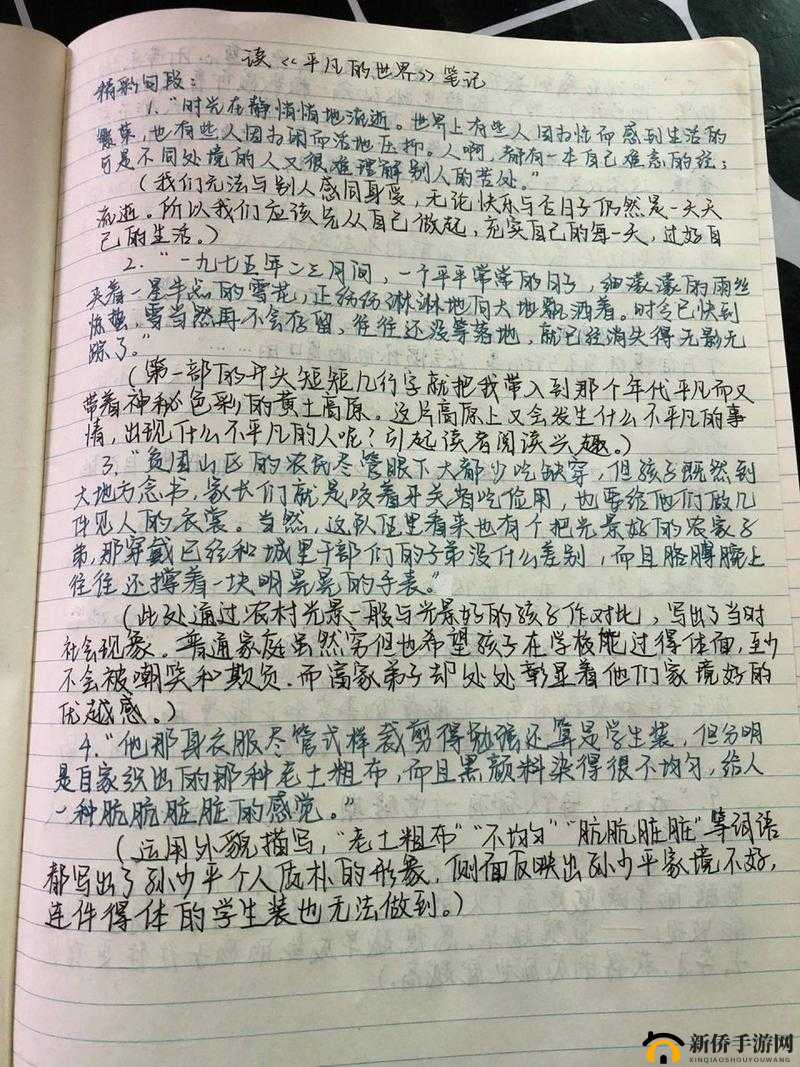 读《平凡的世界》笔记
精彩句段：
1."时光在静悄悄地流逝。世界上有些人因为忙而感到生活的
繁荣，也有些人因为闲而活地压抑。人啊，都有一本自己难念的经；
可是不同处境的人又很难理解别人的苦处。"
(我们无法与别人感同身受，无论快乐与否日子仍然是一天天
流逝。所以我们应该先从自己做起，充实自己的每一天，过好自
己的生活。)
2."一九七五年二三月间，一个平平常常的日子，细濛濛的雨丝
夹着一星半点的雪花，正纷纷淋淋地向大地飘洒着。时令已快到
惊蛰，雪当然再不会存留，往往还没等落地，就已经消失得无影无
踪了。"
(第一部的开头短短几行字就把我带入到那个年代平凡而又
带着神秘色彩的黄土高原。这片高原上又会发生什么不平凡的事
情，出现什么不平凡的人呢？引起读者阅读兴趣。)
3."贫困山区的农民尽管眼下大都少吃缺穿，但孩子既然到
大地方念书，家长们就是咬着牙关省吃俭用，也要给他们做几
件见人的衣裳。当然，这队伍里看来也有个把光景好的农家子
弟，那穿戴已经和城里干部们的子弟没什么差别，而且胳膊腕上
往往还撑着一块明晃晃的手表。"
(此处通过农村光景一般与光景好的孩子作对比，写出了当时
社会现象。普通家庭虽然穷但也希望孩子在学校能过得体面，至少
不会被嘲笑和欺负.而富家弟子却处处彰显着他们家境好的
优越感。)
4."他那身衣服尽管式样裁剪得勉强还算是学生装，但分明
是自家织出的那种老土粗布，而且黑颜料染得很不均匀，给人
一种肮肮脏脏的感觉。"
(运用外貌描写，"老土粗布""不均匀""肮肮脏脏"等词语
都写出了孙少平个人质朴的形象，侧面反映出孙少平家境不好，
连件得体的学生装也无法做到。)
新侨手游网
XINQIAOSHOUYOUWANG